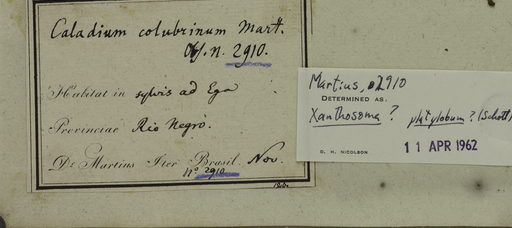 Caladium colubrinum Mart.
Obs. n. 2910.
Habitat in sylvis ad Ega
Provinciae Rio Negro.
Dr. Martius Iter Brasil. Nov.
No 2910
Martius, 2910
DETERMINED AS.
Xanthosoma ? platylobum ? (Schott)
D. H. NICOLSON
11 APR 1962